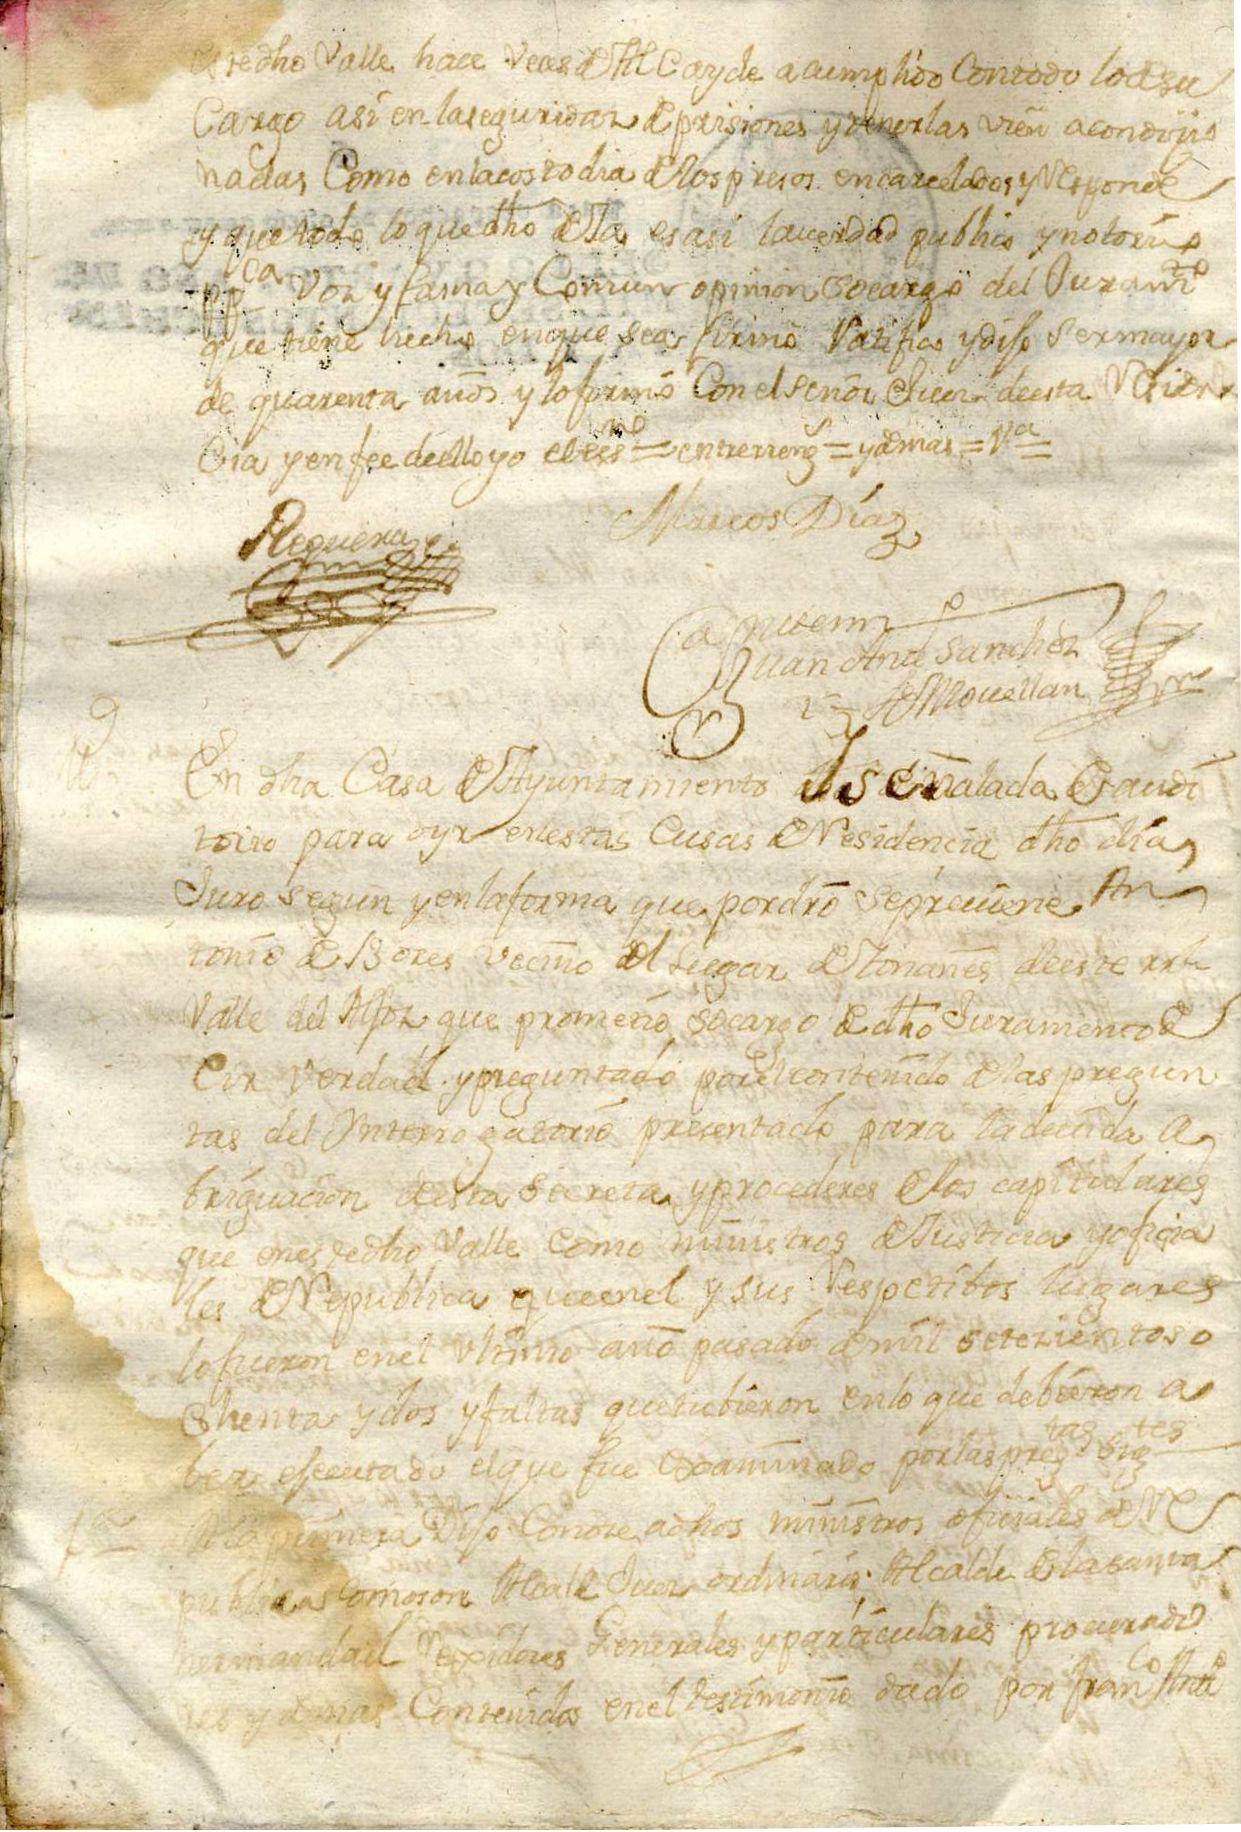 estedho Valle hace Veces de AlCayde a cumplido Contodo lo de su
Cargo asi en la seguridaz de prisiones y tenerlas vien acondizio
nadas Como en la costodia de los presos encarcelados y Responde
y que todo lo que dho lleba es asi la verdad publico y notorio
ppca Voz y fama y Comun opinion socargo del Juramto
que tiene hecho en que se afirmo Ratifico y dijo Ser mayor
de quarenta años y lo firmo Con el señor Juez de esta Residen
Cia y en fee de ello yo el essno = entrerrengs = y demas = Va =
Reguera
Marcos Díaz
Ante mi
Juan Anto Sanchez
de Movellan
to
En dha Casa de Ayuntamiento Señalada de audi
torio para oyr en estas Cusas de Residencia dho dia,
Juro segun y en la forma que por dro se previene An
tonio de Bores vecino del Lugar de Toñanes de este rrl
Valle del Alfoz que prometio socargo de dho Juramento de
Cir Verdad y preguntado por el contenido de las pregun
tas del Interrogatorio presentado para la devida a
briguacion de esta secreta y procederes de los capitulares
que en estedho Valle como ministros de Justicia y oficia
les de Republica que en el y sus Respetibos lugares
lo fueron en el Vltimo año pasado de mil setezientos o
chenta y dos y faltas que tubieron en lo que debieron a
ber ejecutado el que fue examinado por las pregtas Sigtes
1a A la primera Dijo Conoze a dhos ministros oficiales de Re
publica como son Alcalde Juez ordinario Alcalde de la santa
hermandad Rexidores Generales y particulares procurado
res y demas Contenidos en el testimonio dado por Franco Anto